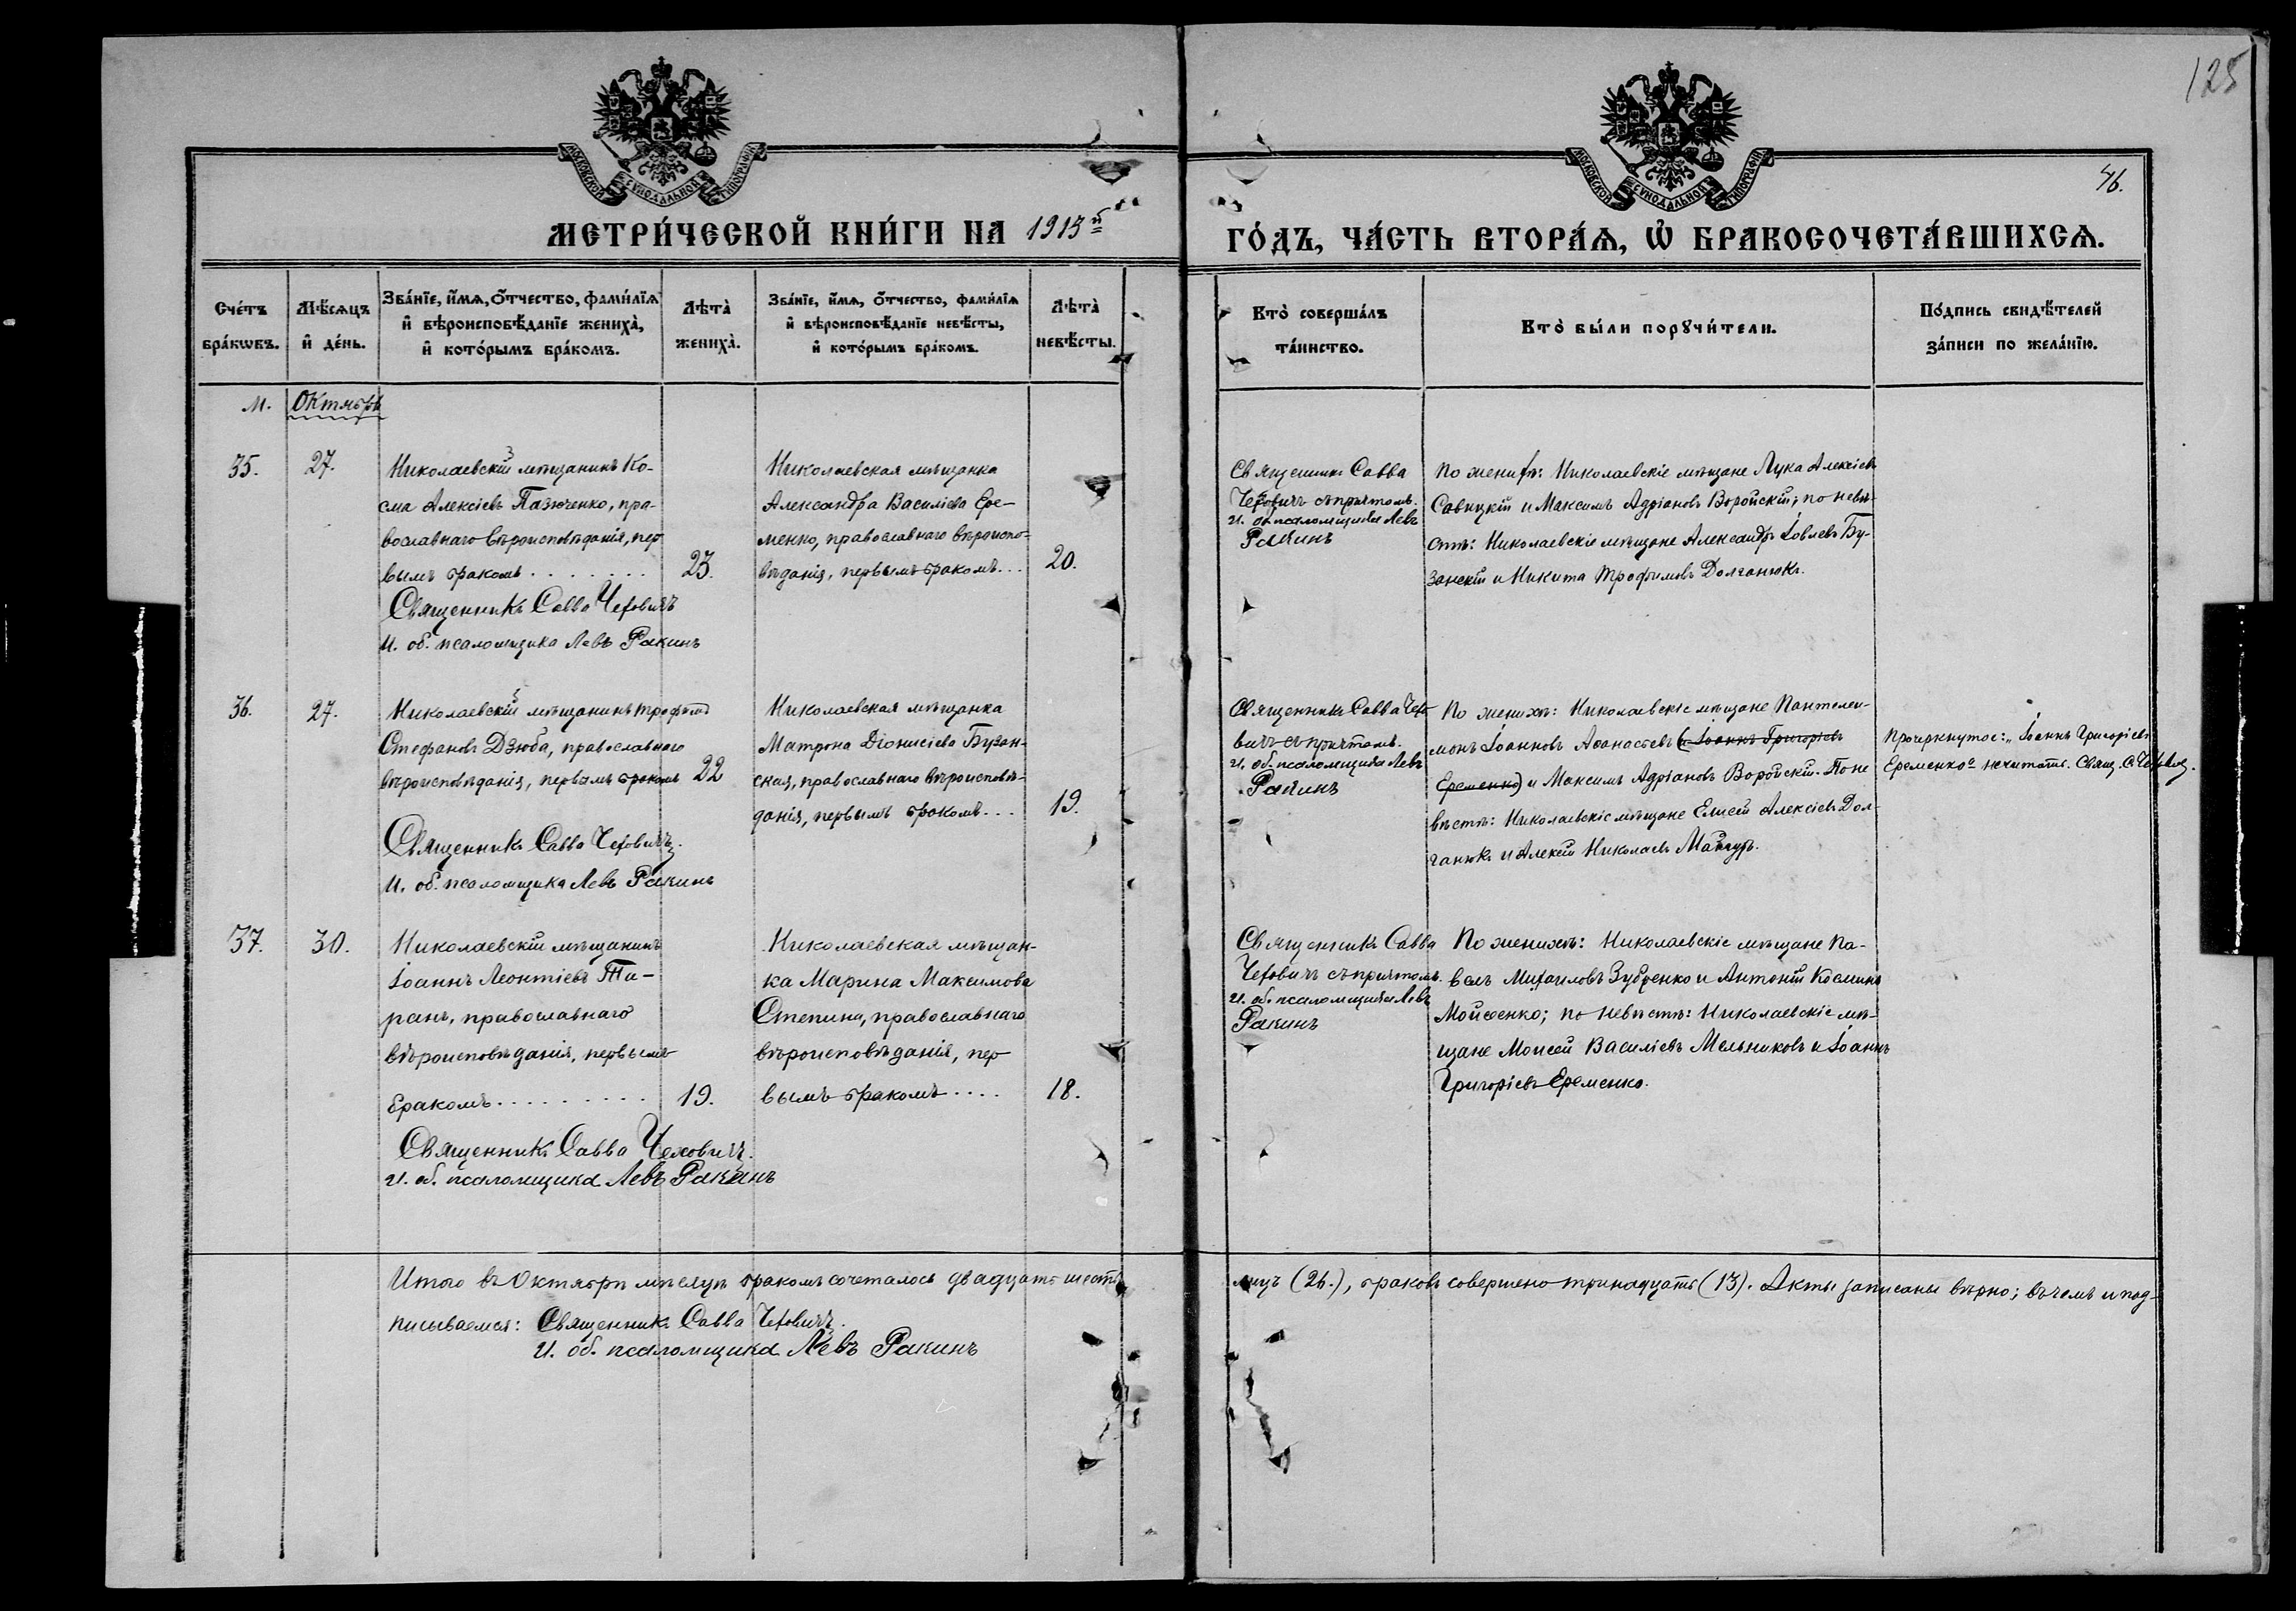 125
46.
МОСКОВСКОЙ СѴНОДАЛЬНОЙ ТИПОГРАФІИ
МОСКОВСКОЙ СѴНОДАЛЬНОЙ ТИПОГРАФІИ
МЕТРИ́ЧЕСКОЙ КНИ́ГИ НА 1913й
ГО́ДЪ, ЧА́СТЬ ВТОРА́Ѧ, Ѡ҆ БРАКОСОЧЕТА́ВШИХСѦ.
Сче́тъ бра́кѡвъ.
Мѣ́сѧцъ и҆ де́нь.
Зва́нїе, и҆́мѧ, ѻ҆́тчество, фами́лїѧ
и҆ вѣроисповѣ́данїе жениха̀,
и҆ кото́рымъ бра́комъ.
Лѣта̀ жениха̀.
Зва́нїе, и҆́мѧ, ѻ҆́тчество, фами́лїѧ
и҆ вѣроисповѣ́данїе невѣ́сты,
и҆ кото́рымъ бра́комъ.
Лѣта̀ невѣ́сты.
Кто̀ соверша́лъ
та́инство.
Кто̀ бы́ли порꙋчи́тели.
По́дпись свидѣ́телей
за́писи по жела́нїю.
М. Октябрь
35.
27.
Николаевскій мѣщанинъ Ко-
сма Алексіевъ Пазюченко, пра-
вославнаго вѣроисповѣданія, пер
вымъ бракомъ . . . . . . . 23.
Священникъ Савва Чеховичъ
И. об. псаломщика Левъ Ракинъ
Николаевская мѣщанка
Александра Василіева Ере-
менко, православнаго вѣроиспо-
вѣданія, первымъ бракомъ... 20.
Священникъ Савва
Чеховичъ съ причтомъ.
И. об. псаломщика Левъ
Ракинъ
По женихѣ: Николаевскіе мѣщане Лука Алексіевъ
Савицкій и Максимъ Адріановъ Воройскій; по невѣ-
стѣ: Николаевскіе мѣщане Александръ Іовлевъ Бу-
занскій и Никита Трофимовъ Долганюкъ.
36.
27.
Николаевскій мѣщанинъ Трофимъ
Стефановъ Дзюба, православнаго
вѣроисповѣданія, первымъ бракомъ 22
Священникъ Савва Чеховичъ.
И. об. псаломщика Левъ Ракинъ
Николаевская мѣщанка
Матрона Діонисіева Бузан-
ская, православнаго вѣроисповѣ-
данія, первымъ бракомъ... 19.
Священникъ Савва Чехо
вичъ съ причтомъ.
И. об. псаломщика Левъ
Ракинъ
По женихѣ: Николаевскіе мѣщане Пантелеи-
монъ Іоанновъ Аѳанасіевъ (и Іоаннъ Григоріевъ
Еременко) и Максимъ Адріановъ Воройскій. По не
вѣстѣ: Николаевскіе мѣщане Елисей Алексіевъ Дол-
ганюкъ и Алексій Николаевъ
Прочеркнутое: „Іоаннъ Григоріевъ
Еременко" не читать. Свящ. С. Чеховичъ.
37.
30.
Николаевскій мѣщанинъ
Іоаннъ Леонтіевъ Та-
ранъ, православнаго
вѣроисповѣданія, первымъ
бракомъ . . . . . . . . . 19.
Священникъ Савва Чеховичъ.
И. об. псаломщика Левъ Ракинъ
Николаевская мѣщан-
ка Марина Максимова
Степина, православнаго
вѣроисповѣданія, пер
вымъ бракомъ.... 18.
Священникъ Савва
Чеховичъ съ причтомъ.
И. об. псаломщика Левъ
Ракинъ
По женихѣ: Николаевскіе мѣщане Па-
велъ Михаиловъ Зубченко и Антоній Косминъ
Мойсеенко; по невѣстѣ: Николаевскіе мѣ-
щане Моисей Василіевъ Мельниковъ и Іоаннъ
Григоріевъ Еременко.
Итого въ Октябрѣ мѣсяцѣ бракомъ сочеталось двадцать шесть лицъ (26.), браковъ совершено тринадцать (13). Акты записаны вѣрно; въ чемъ и под-
писываемся: Священникъ Савва Чеховичъ.
И. об. псаломщика Левъ Ракинъ